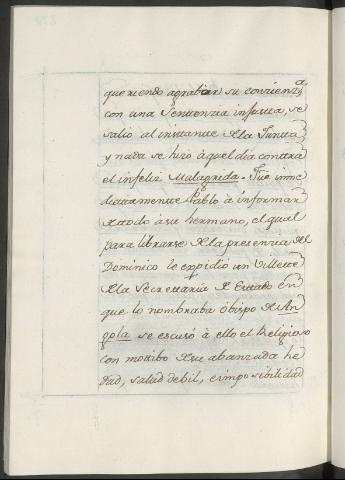 queriendo agrabiar su convienza
con una Sentenzia infusta, se
salio al instante de la Junta
y nada se hizo àquel dia contra
el infeliz Malagrida. Fue inme
diatamente Pablo à informar
de todo à su hermano, el qual
para librarse de la presenzia del
Dominico le expidio un Villette
de la Secretaria de Estado en
que lo nombraba obispo de An
gola se escusò à ello el Religioso
con motibo de su abanzada he
dad, salud debil, e imposibilidad